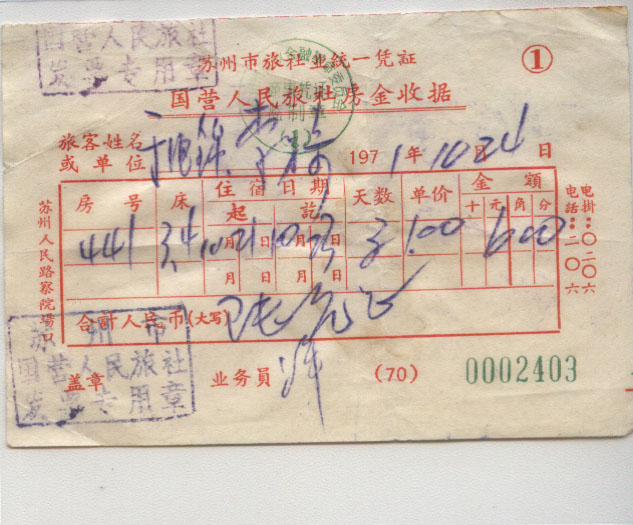 国营人民旅社
发票专用章
苏州市旅社业统一凭证
①
国营人民旅社房金收据
旅客姓名
或单位
1971年10月24日
房号 床 住宿日期 天数 单价 金额
起 訖 十元角分
441 3.4 10月21日10月日 3 1.00 6 00
月日月日
合计人民币(大写)
苏州人民路察院場口
电掛：〇二〇六
电話：二〇六
苏州市
国营人民旅社
发票专用章
盖章 业务员 (70) 0002403